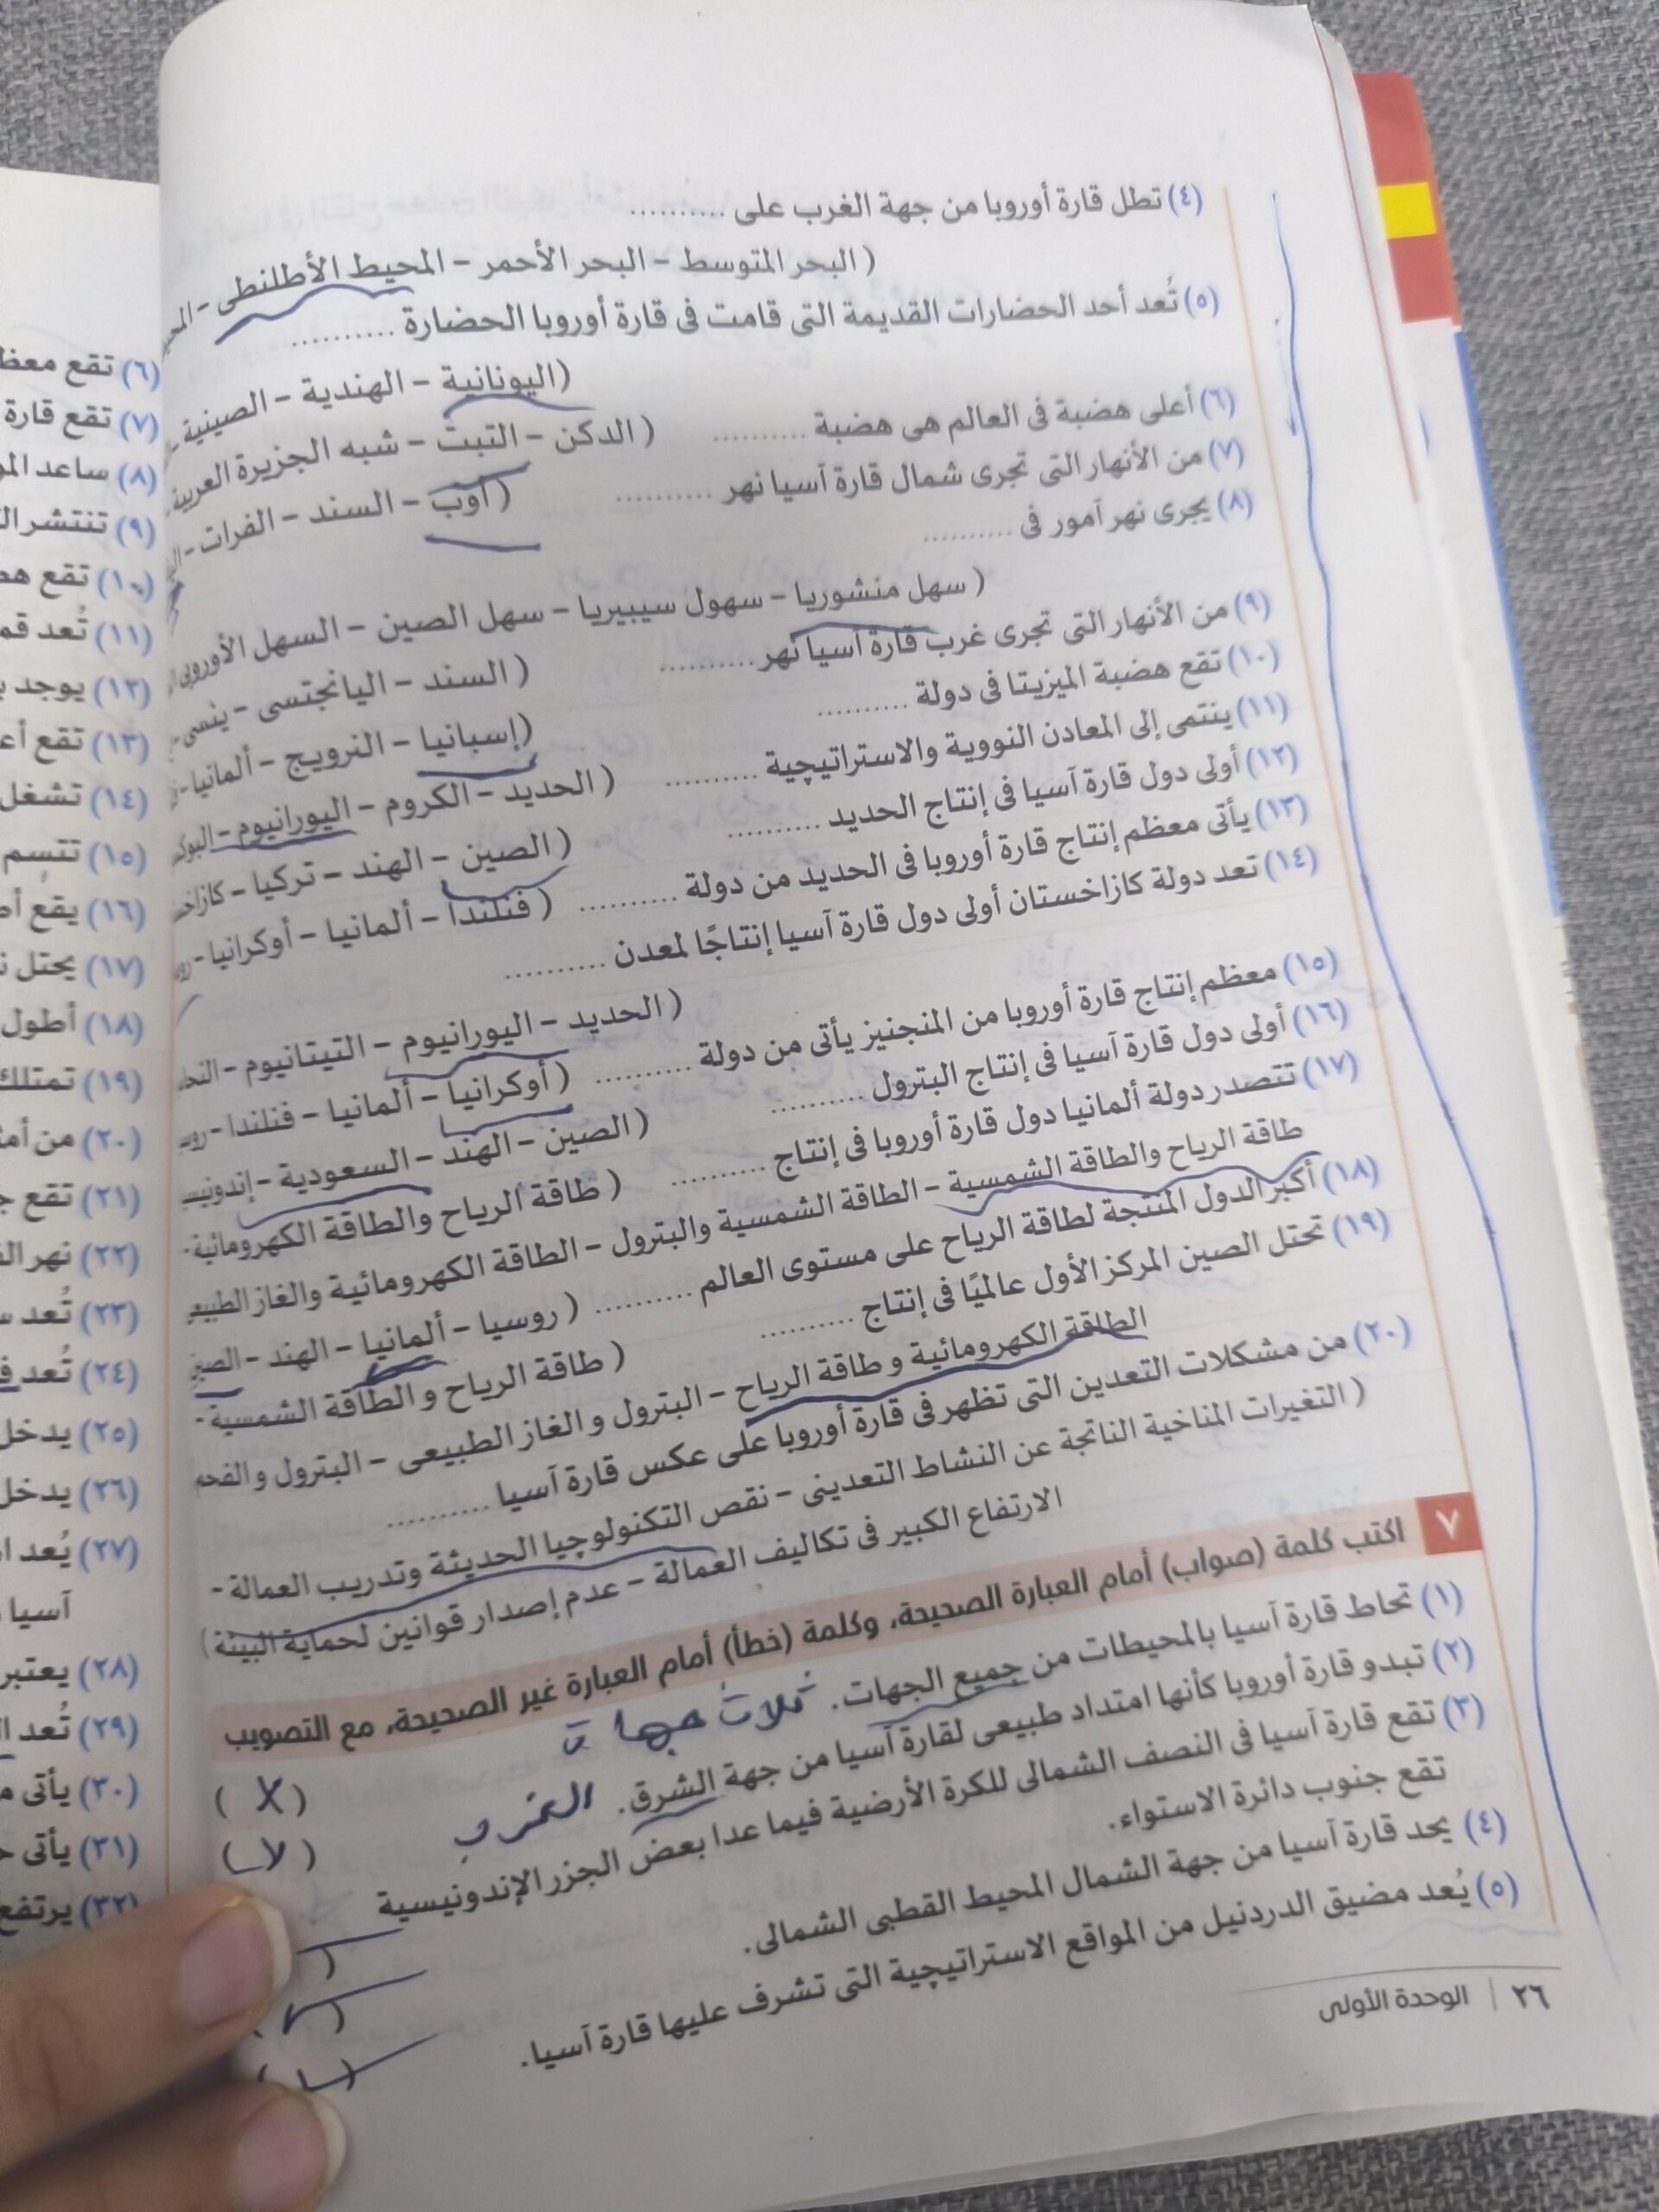 (٤) تطل قارة أوروبا من جهة الغرب على ..........
( البحر المتوسط – البحر الأحمر – المحيط الأطلنطى –
(٥) تُعد أحد الحضارات القديمة التى قامت فى قارة أوروبا الحضارة ..........
(اليونانية – الهندية – الصينية –
(٦) أعلى هضبة فى العالم هى هضبة .......... ( الدكن – التبت – شبه الجزيرة العربية
(٧) من الأنهار التى تجرى شمال قارة آسيا نهر .......... ( أوب – السند – الفرات –
(٨) يجرى نهر آمور فى ..........
( سهل منشوريا – سهول سيبيريا – سهل الصين – السهل الأوروبى
(٩) من الأنهار التى تجرى غرب قارة آسيا نهر .......... ( السند – اليانجتسى – ينسى –
(١٠) تقع هضبة الميزيتا فى دولة .......... (إسبانيا – النرويج – ألمانيا –
(١١) ينتمى إلى المعادن النووية والاستراتيچية .......... ( الحديد – الكروم – اليورانيوم –
(١٢) أولى دول قارة آسيا فى إنتاج الحديد .......... ( الصين – الهند – تركيا –
(١٣) يأتى معظم إنتاج قارة أوروبا فى الحديد من دولة .......... ( فنلندا – ألمانيا – أوكرانيا –
(١٤) تعد دولة كازاخستان أولى دول قارة آسيا إنتاجًا لمعدن ..........
( الحديد – اليورانيوم – التيتانيوم –
(١٥) معظم إنتاج قارة أوروبا من المنجنيز يأتى من دولة .......... ( أوكرانيا – ألمانيا – فنلندا –
(١٦) أولى دول قارة آسيا فى إنتاج البترول .......... ( الصين – الهند – السعودية –
(١٧) تتصدر دولة ألمانيا دول قارة أوروبا فى إنتاج .......... ( طاقة الرياح والطاقة الكهرومائية –
طاقة الرياح والطاقة الشمسية – الطاقة الشمسية والبترول – الطاقة الكهرومائية والغاز
(١٨) أكبر الدول المنتجة لطاقة الرياح على مستوى العالم .......... ( روسيا – ألمانيا – الهند –
(١٩) تحتل الصين المركز الأول عالميًا فى إنتاج .......... ( طاقة الرياح و الطاقة الشمسية –
الطاقة الكهرومائية و طاقة الرياح – البترول و الغاز الطبيعى – البترول و الفحم
(٢٠) من مشكلات التعدين التى تظهر فى قارة أوروبا على عكس قارة آسيا ..........
( التغيرات المناخية الناتجة عن النشاط التعدينى – نقص التكنولوچيا الحديثة وتدريب العمالة –
الارتفاع الكبير فى تكاليف العمالة – عدم إصدار قوانين لحماية البيئة )
٧ اكتب كلمة (صواب) أمام العبارة الصحيحة، وكلمة (خطأ) أمام العبارة غير الصحيحة، مع التصويب
(١) تحاط قارة آسيا بالمحيطات من جميع الجهات. ثلاث جهات ( X )
(٢) تبدو قارة أوروبا كأنها امتداد طبيعى لقارة آسيا من جهة الشرق. الغرب ( )
(٣) تقع قارة آسيا فى النصف الشمالى للكرة الأرضية فيما عدا بعض الجزر الإندونيسية
تقع جنوب دائرة الاستواء.
(٤) يحد قارة آسيا من جهة الشمال المحيط القطبى الشمالى.
(٥) يُعد مضيق الدردنيل من المواقع الاستراتيچية التى تشرف عليها قارة آسيا.
٢٦ | الوحدة الأولى
(٦) تقع
(٧) تقع قارة
(٨) ساعد
(٩)
(١٠) تقع
(١١) تُعد
(١٢) يوجد
(١٣) تقع
(١٤) تشغل
(١٥) تتسم
(١٦) يقع
(١٧) يحتل
(١٨) أطول
(١٩) تمتلك
(٢٠) من
(٢١) تقع
(٢٢) نهر
(٢٣) تُعد
(٢٤) تُعد
(٢٥) يدخل
(٢٦) يدخل
(٢٧) يُعد
آسيا
(٢٨) يعتبر
(٢٩) تُعد
(٣٠) يأتى
(٣١) يأتى
(٣٢) يرتفع